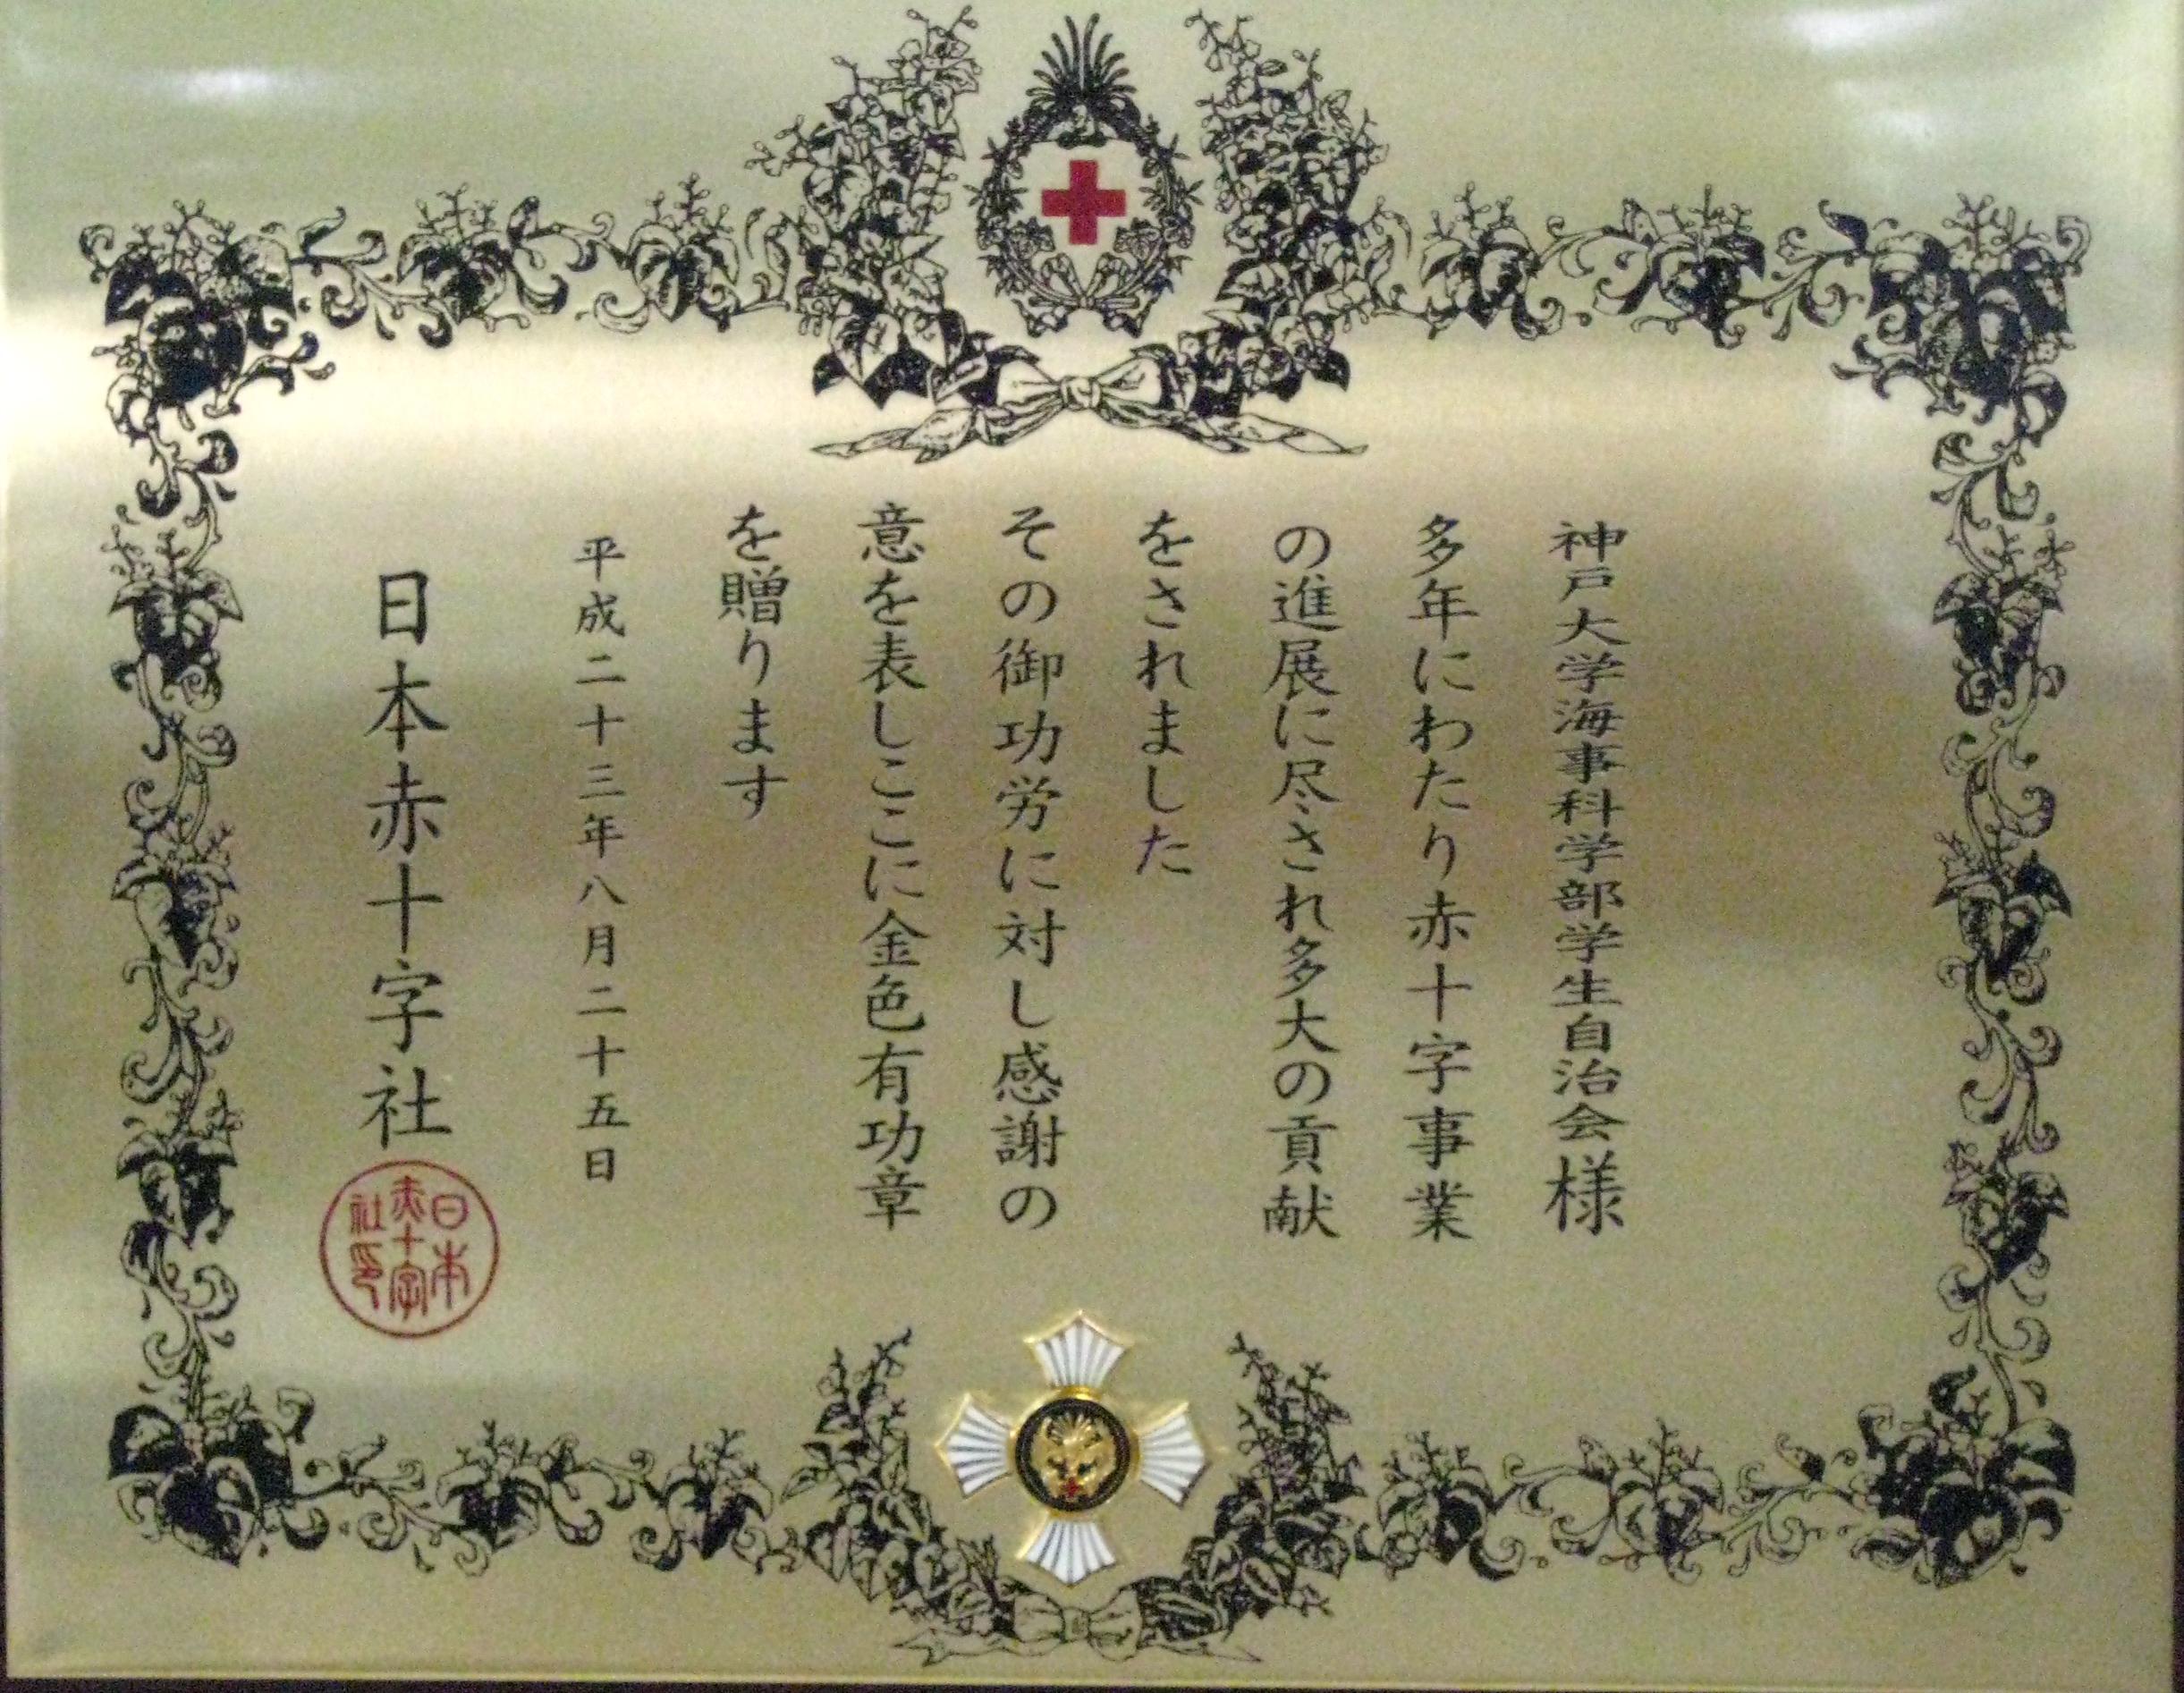 神戸大学海事科学部学生自治会様
多年にわたり赤十字事業
の進展に尽され多大の貢献
をされました
その御功労に対し感謝の
意を表しここに金色有功章
を贈ります
平成二十三年八月二十五日
日本赤十字社
日本
赤十字
社印